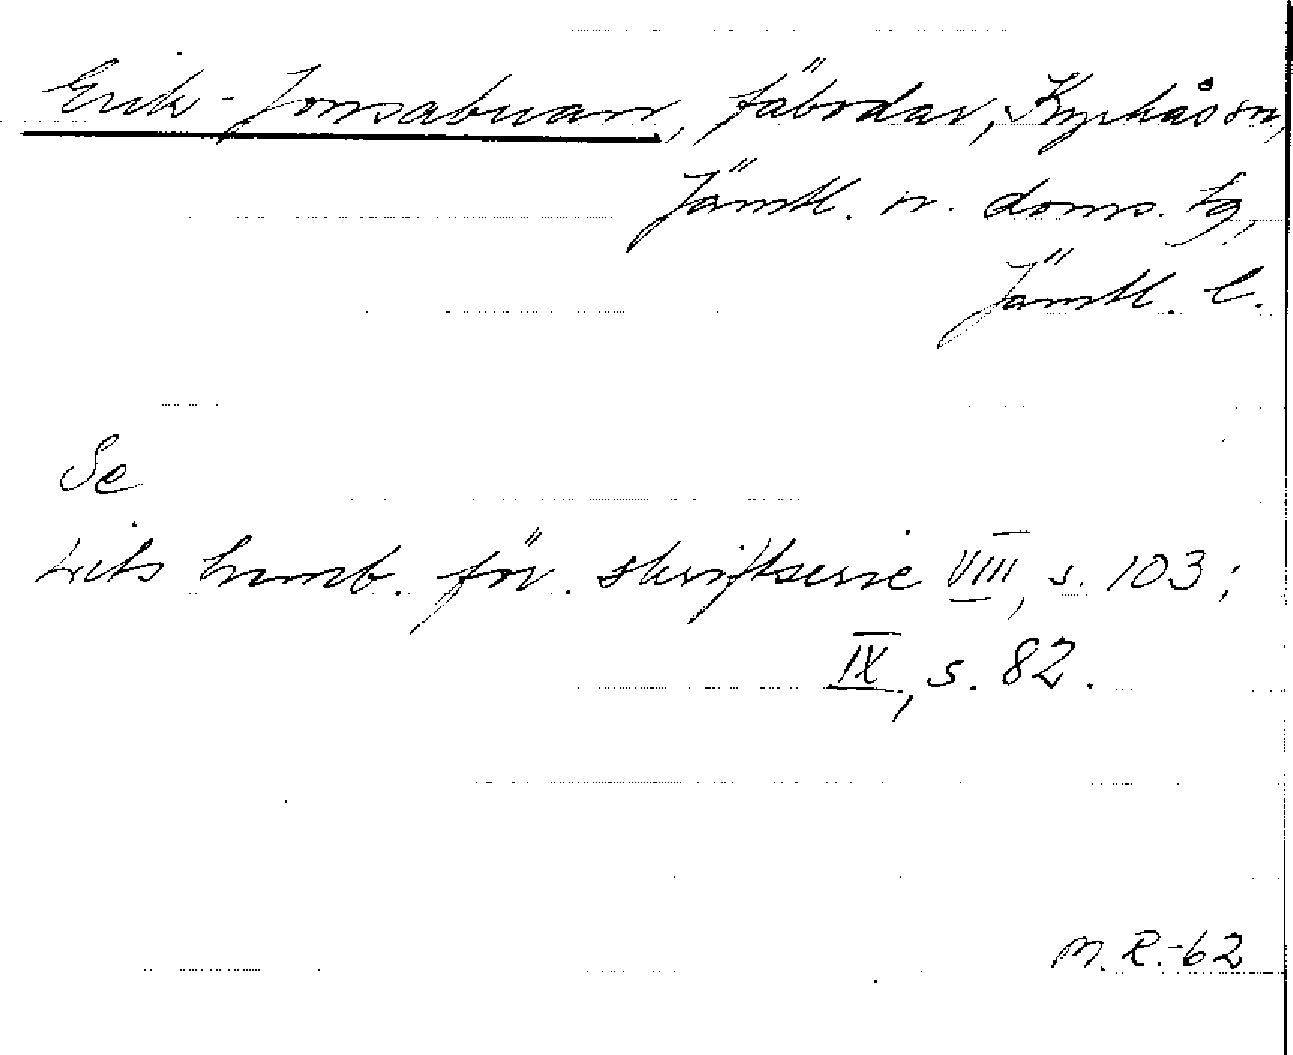 Erik-Jonsabuan, fäbodar, Kyrkås sn,
Jämtl. n. doms. tg,
Jämtl. l.
Se
Lits hemb. för. skriftserie VIII, s. 103;
IX, s. 82.
M. R.-62